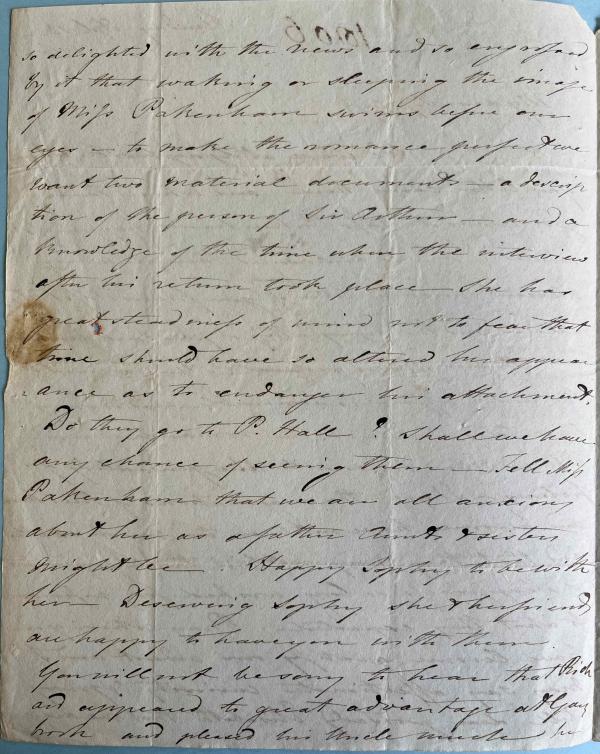 1806
so delighted with the news and so engrossed
by it that waking or sleeping the image
of Miss Pakenham swims before our
eyes – to make the romance perfect we
want two material documents – a descrip
tion of the person of Sir Arthur – and a
knowledge of the time when the interview
after his return took place – She has
great steadiness of mind not to fear that
time should have so altered her appear
ance as to endanger his attachment.
Do they go to P. Hall? Shall we have
any chance of seeing them – Tell Miss
Pakenham that we are all anxious
about her as a father Aunts & sisters
might be – Happy Sophy to be with
her – Deserving Sophy she & her friends
are happy to have you with them.
You will not be sorry to hear that Rich
ard appeared to great advantage at
brook and pleased his Uncle much